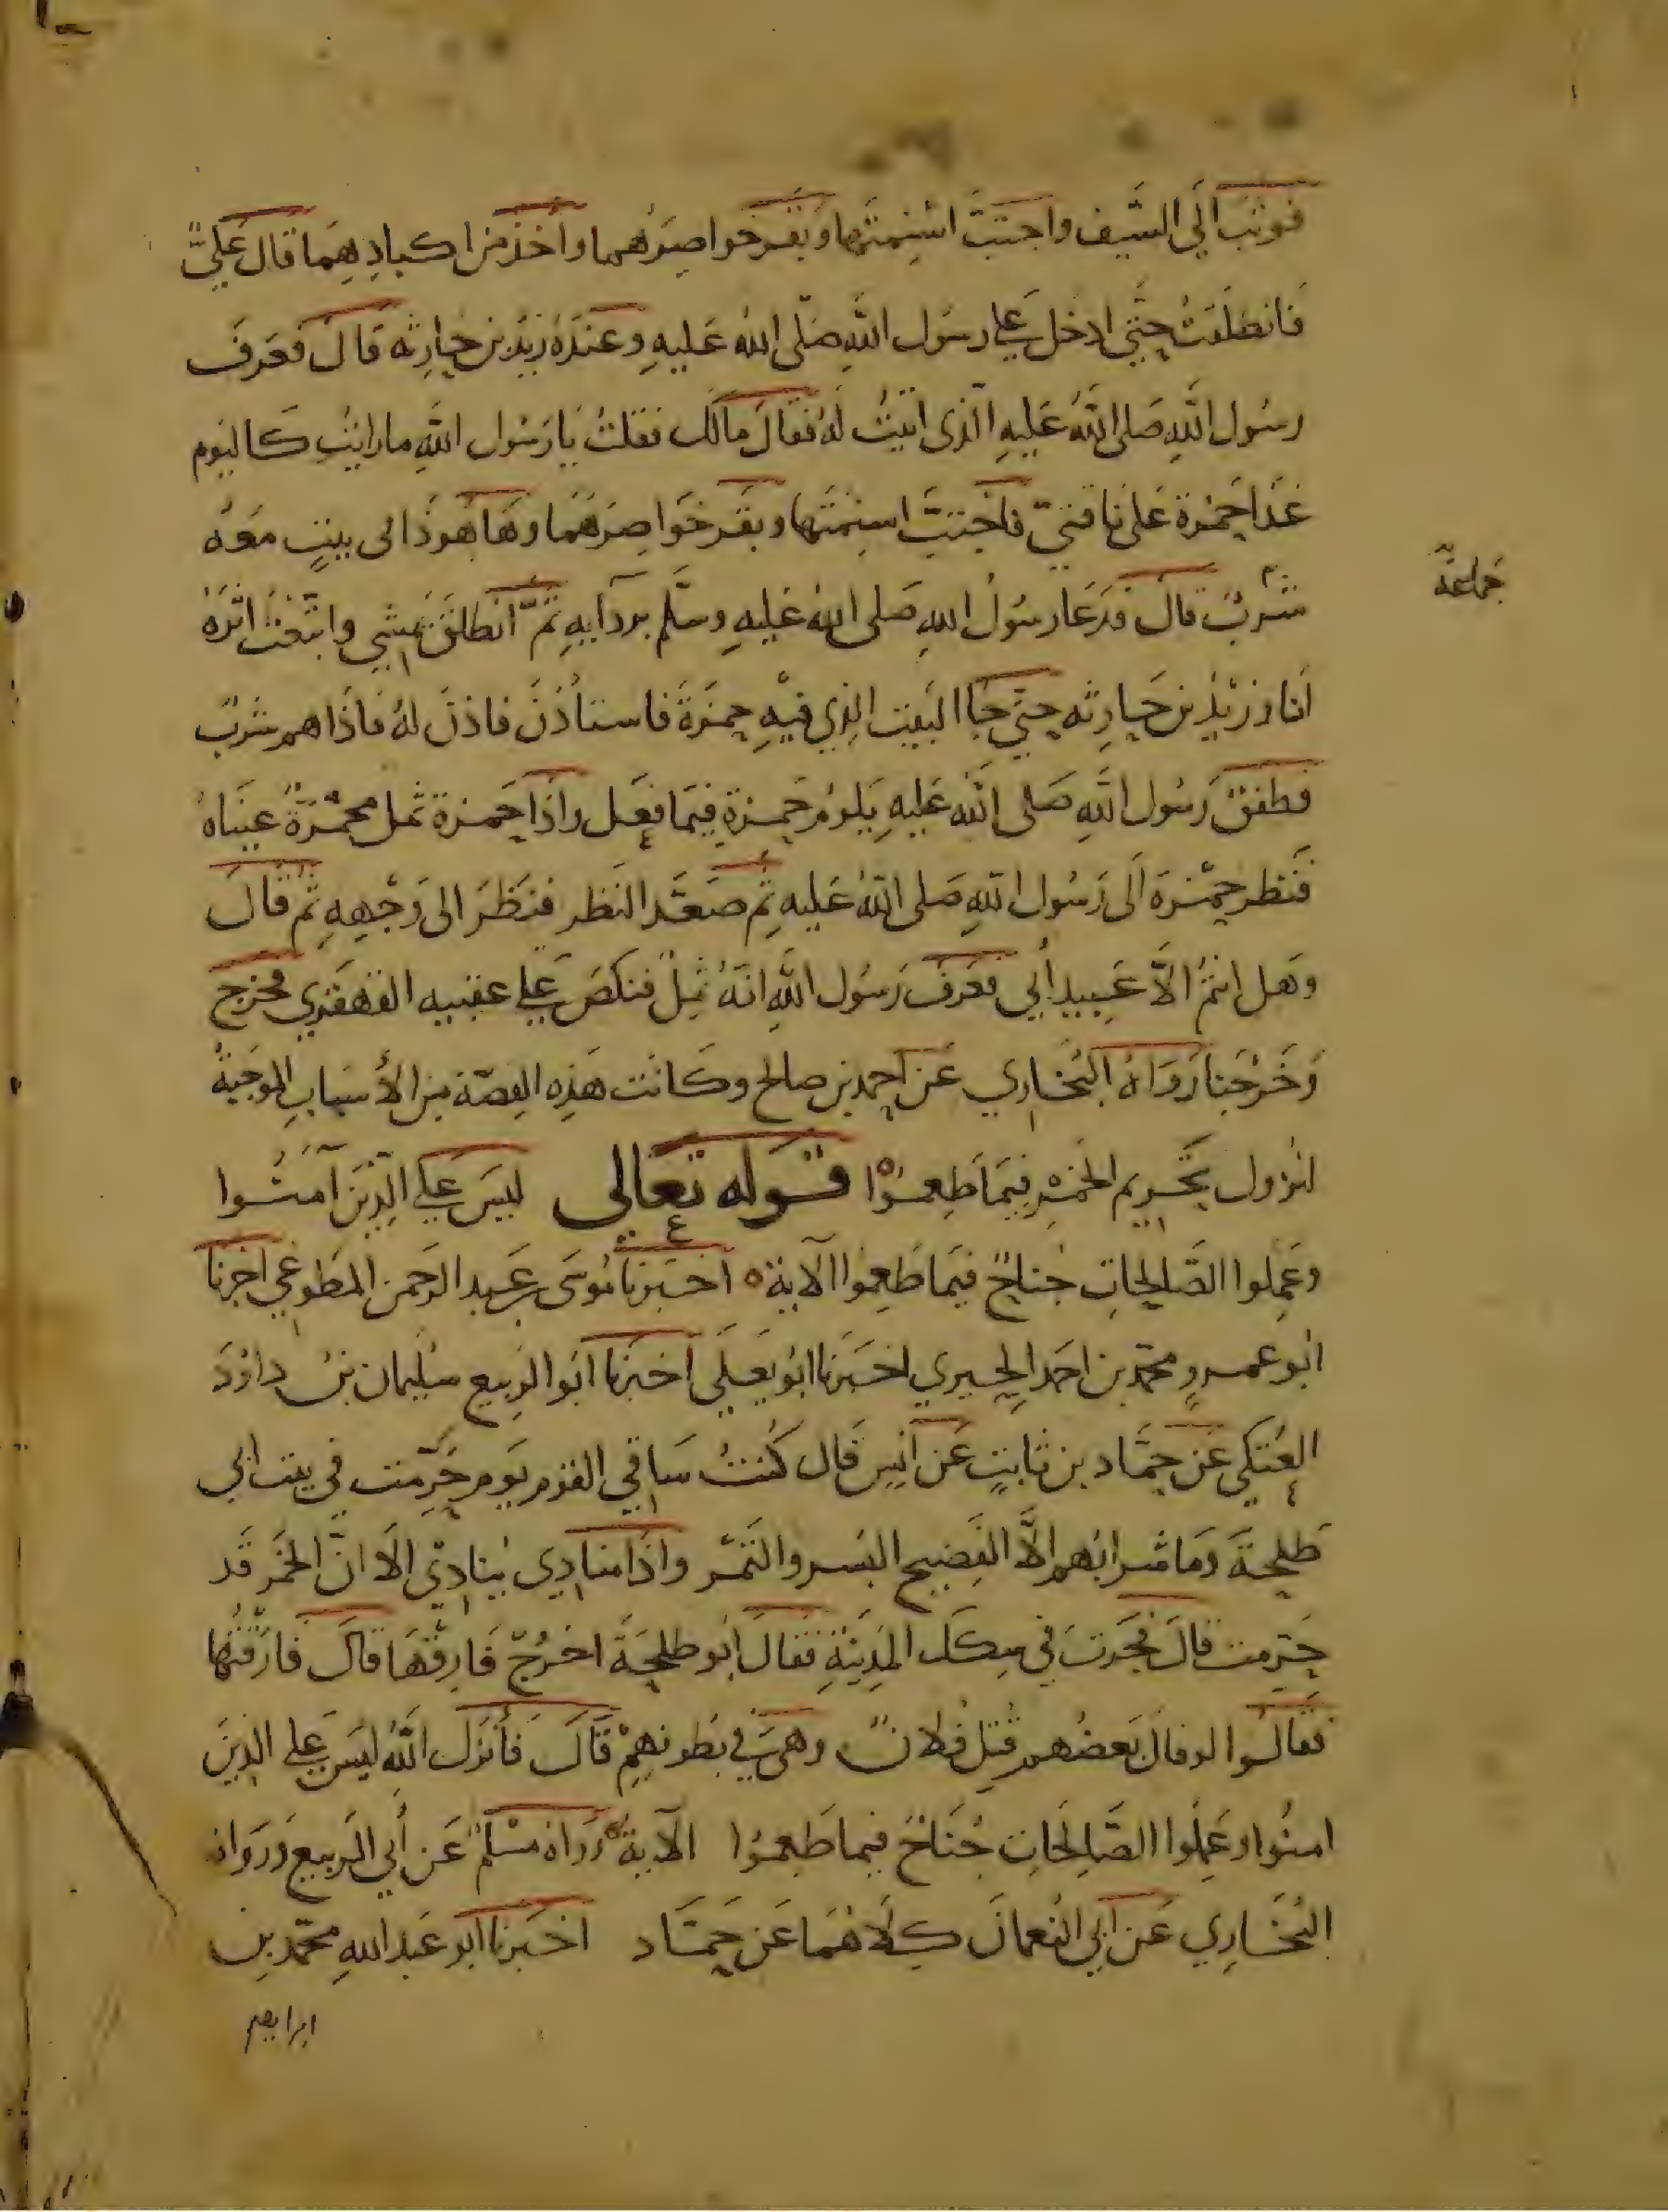 فوثب الي السيف واجتب اسنمتها وبقر خواصرهما واخذ من اكبادهما قال علي
فانطلقت حتي ادخل علي رسول الله صلى الله عليه وعنده زيد بن حارثه قال فعرف
رسول الله صلى الله عليه الذى اتيت له فقال مالك فقلت يا رسول الله ما رايت كاليوم
عدا حمزة على ناقتيّ فاجتب اسنمتها وبقر خواصرهما وها هو ذا الى بيت معه
شرب قال فدعا رسول الله صلى الله عليه وسلم بردآيه ثم انطلق يمشي واتبعت اثره
جماعة
انا وزيد بن حارثه حتي جا البيت الذي فيه حمزة فاستأذن فاذن له فاذا هم شرب
فطفق رسول الله صلى الله عليه يلوم حمزة فيما فعل واذا حمزة ثمل محمرة عيناه
فنظر حمزة الى رسول الله صلى الله عليه ثم صعد النظر فنظر الى وجهه ثم قال
وهل انتم الا عبيد أبي فعرف رسول الله انه ثمل فنكص علي عقبيه القهقري فخرج
وخرجنا رواه البخاري عن احمد بن صالح وكانت هذه القصة من الأسباب الموجبة
لنزول تحريم الخمر فيما طعموا قوله تعالى ليس علي الذين آمنوا
وعملوا الصالحات جناح فيما طعموا الآية اخبرنا موسى بن عبد الرحمن المطوعي اخبرنا
ابو عمرو محمد بن احمد الحيري اخبرنا ابو يعلي اخبرنا ابو الربيع سليمان بن داود
العتكي عن حماد بن ثابت عن انس قال كنت ساقي القوم يوم حرمت في بيت ابي
طلحة وما شرابهم الا الفضيح البسر والتمر واذا منادي ينادي الا ان الخمر قد
حرمت قال فجرت في سكك المدينة فقال ابو طلحة اخرج فارقها قال فارقتها
فقالوا او قال بعضهم قتل فلان وهي في بطونهم قال فأنزل الله ليس علي الذين
امنوا وعملوا الصالحات جناح فيما طعموا الآية رواه مسلم عن أبي الربيع ورواه
البخاري عن ابي النعمان كلاهما عن حماد اخبرنا ابو عبد الله محمد بن
ابراهيم